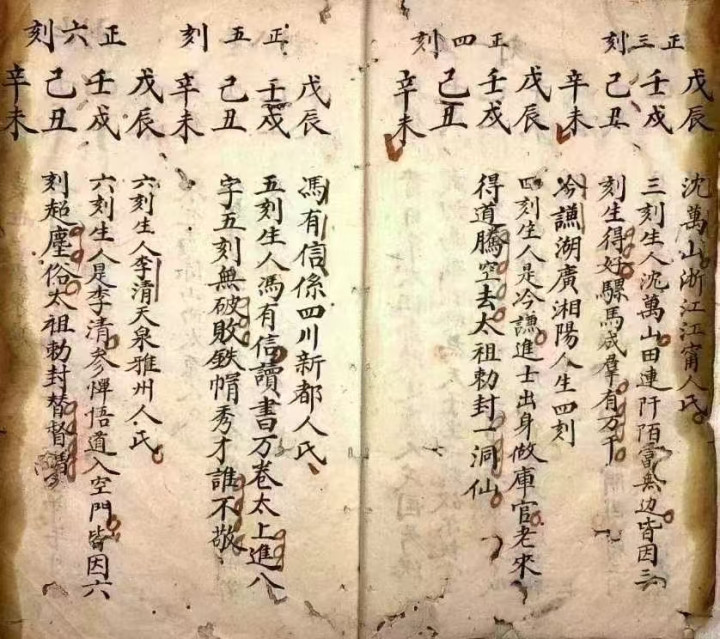 正三刻
戊辰
壬戌
己丑
辛未
沈萬山浙江江甯人氏
三刻生人沈萬山田連阡陌富無边皆因三
刻生得好騾馬成羣有万千
正四刻
戊辰
壬戌
己丑
辛未
冷謙湖廣湘陽人生四刻
四刻生人是冷謙進士出身做庫官老來
得道騰空去太祖勅封一洞仙
正五刻
戊辰
壬戌
己丑
辛未
馮有信係四川新都人氏
五刻生人馮有信讀書万卷太上進八
字五刻無破敗鉄帽秀才誰不敬
正六刻
戊辰
壬戌
己丑
辛未
六刻生人李清天泉雅州人氏
六刻生人是李清参惮悟道入空門皆因六
刻超塵俗太祖勅封